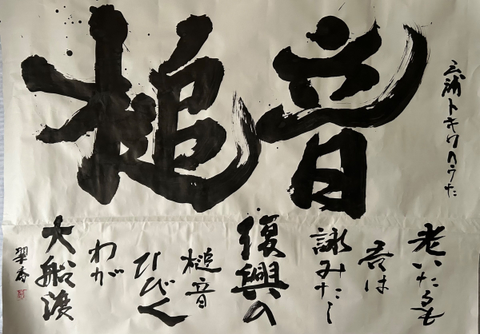 槌音
三浦トキワのうた
老いたるも
吾は
詠みたし
復興の
槌音
ひびく
わが
大船渡